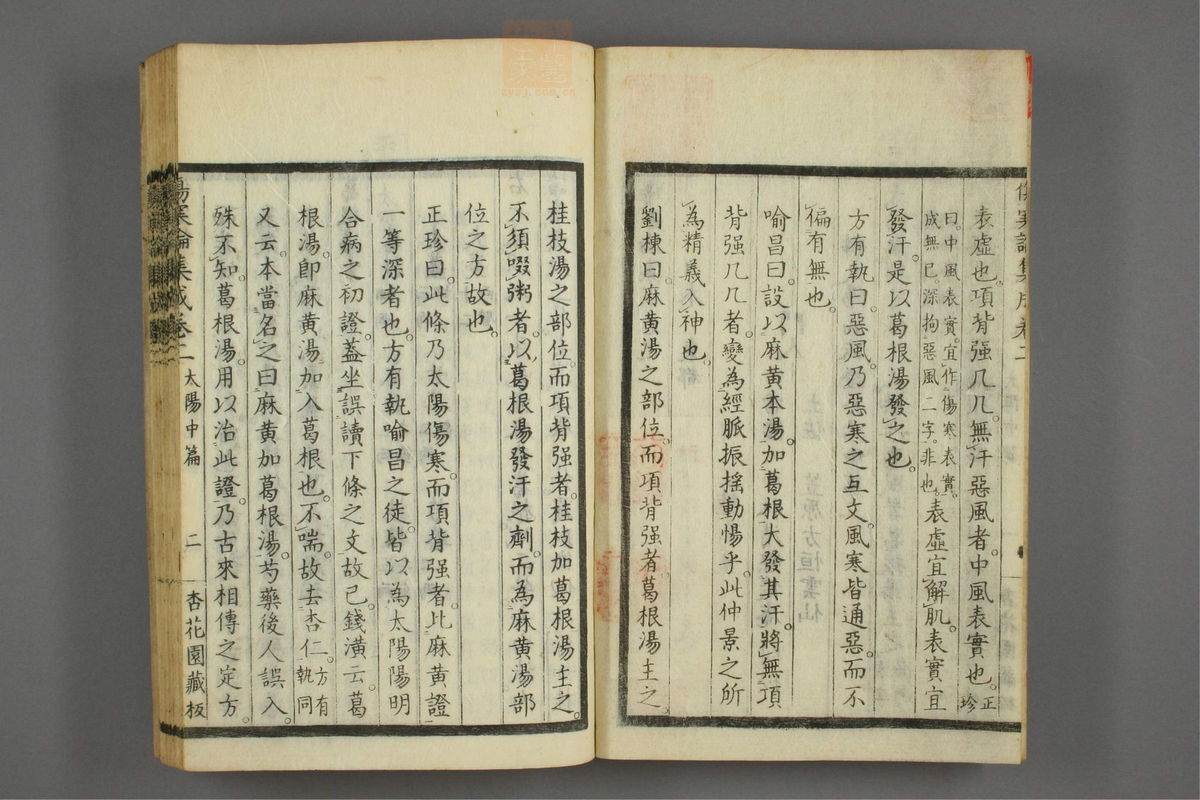 傷寒論集成卷二
表虛也。項背强几几。無汗惡風者。中風表實也。正珍
曰。中風表實。宜作傷寒表實。成無已深拘惡風二字。非也。表虛宜解肌。表實宜
發汗。是以葛根湯發之也。
方有執曰。惡風。乃惡寒之互文。風寒皆通惡。而不
偏有無也。
喻昌曰。設以麻黃本湯。加葛根大發其汗。將無項
背强几几者。變為經脈振搖動惕乎。此仲景之所
為精義入神也。
劉棟曰。麻黃湯之部位。而項背强者。葛根湯主之。
桂枝湯之部位。而項背强者。桂枝加葛根湯主之。
不須啜粥者。以葛根湯發汗之劑。而為麻黃湯部
位之方故也。
正珍曰。此條乃太陽傷寒。而項背强者。比麻黃證
一等深者也。方有執喻昌之徒。皆以為太陽陽明
合病之初證。蓋坐誤讀下條之文故已。錢潢云。葛
根湯。卽麻黃湯加入葛根也。不喘。故去杏仁。方有執同
又云。本當名之曰麻黃加葛根湯。芍藥後人誤入。
殊不知葛根湯。用以治此證。乃古來相傳之定方。
傷寒論集成卷二 太陽中篇 二 杏花園藏板
zysj.com.cn